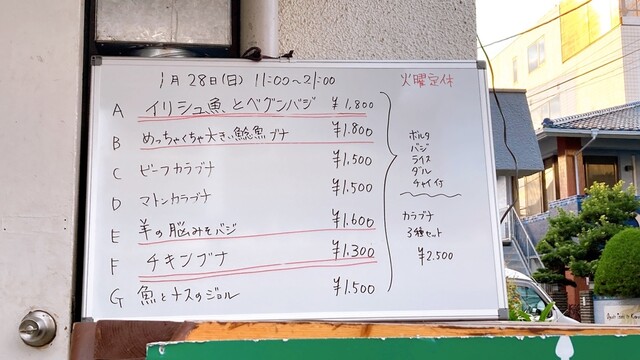 1月28日(日) 11:00〜21:00
火曜定休
A イリシュ魚とベグンバジ ¥1,800
B めっちゃくちゃ大きい鯰魚ブナ ¥1.800
C ビーフカラブナ ¥1,500
D マトンカラブナ ¥1.500
E 羊の脳みそバジ ¥1.600
F チキンブナ ¥1.300
G 魚とナスのジョル ¥1.500
ボルタ
バジ
ライス
ダル
チャイ付
カラブナ
3種セット
¥2.500